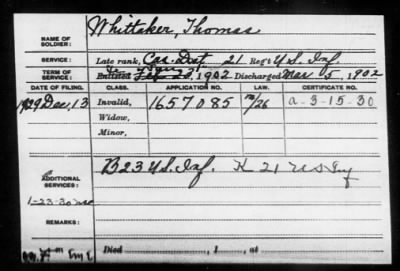 NAME OF SOLDIER: Whittaker, Thomas
SERVICE: Late rank, Cas. Det. 21 Reg't U.S. Inf.
TERM OF SERVICE: Enlisted 1902 Discharged Mar 5, 1902
DATE OF FILING. CLASS. APPLICATION NO. LAW. CERTIFICATE NO.
1929 Dec, 13 Invalid, 1657085 a-3-15-30
Widow,
Minor,
ADDITIONAL SERVICES: B 23 U.S. Inf. K 21 U S Inf
1-23-30
REMARKS:
Died , 1 , at